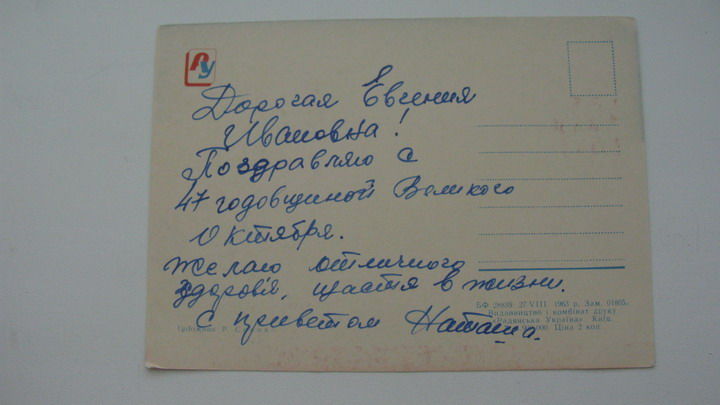 РУ
Дорогая Евгения
Ивановна!
Поздравляю с
47 годовщиной Великого
Октября.
Желаю отличного
здоровʼя, щастя в жизни.
С приветом Наташа.
БФ 20039 27 VIII 1963 р. Зам. 01605.
Видавництво і комбінат друку
«Радянська Україна». Київ.
000 Ціна 2 коп.